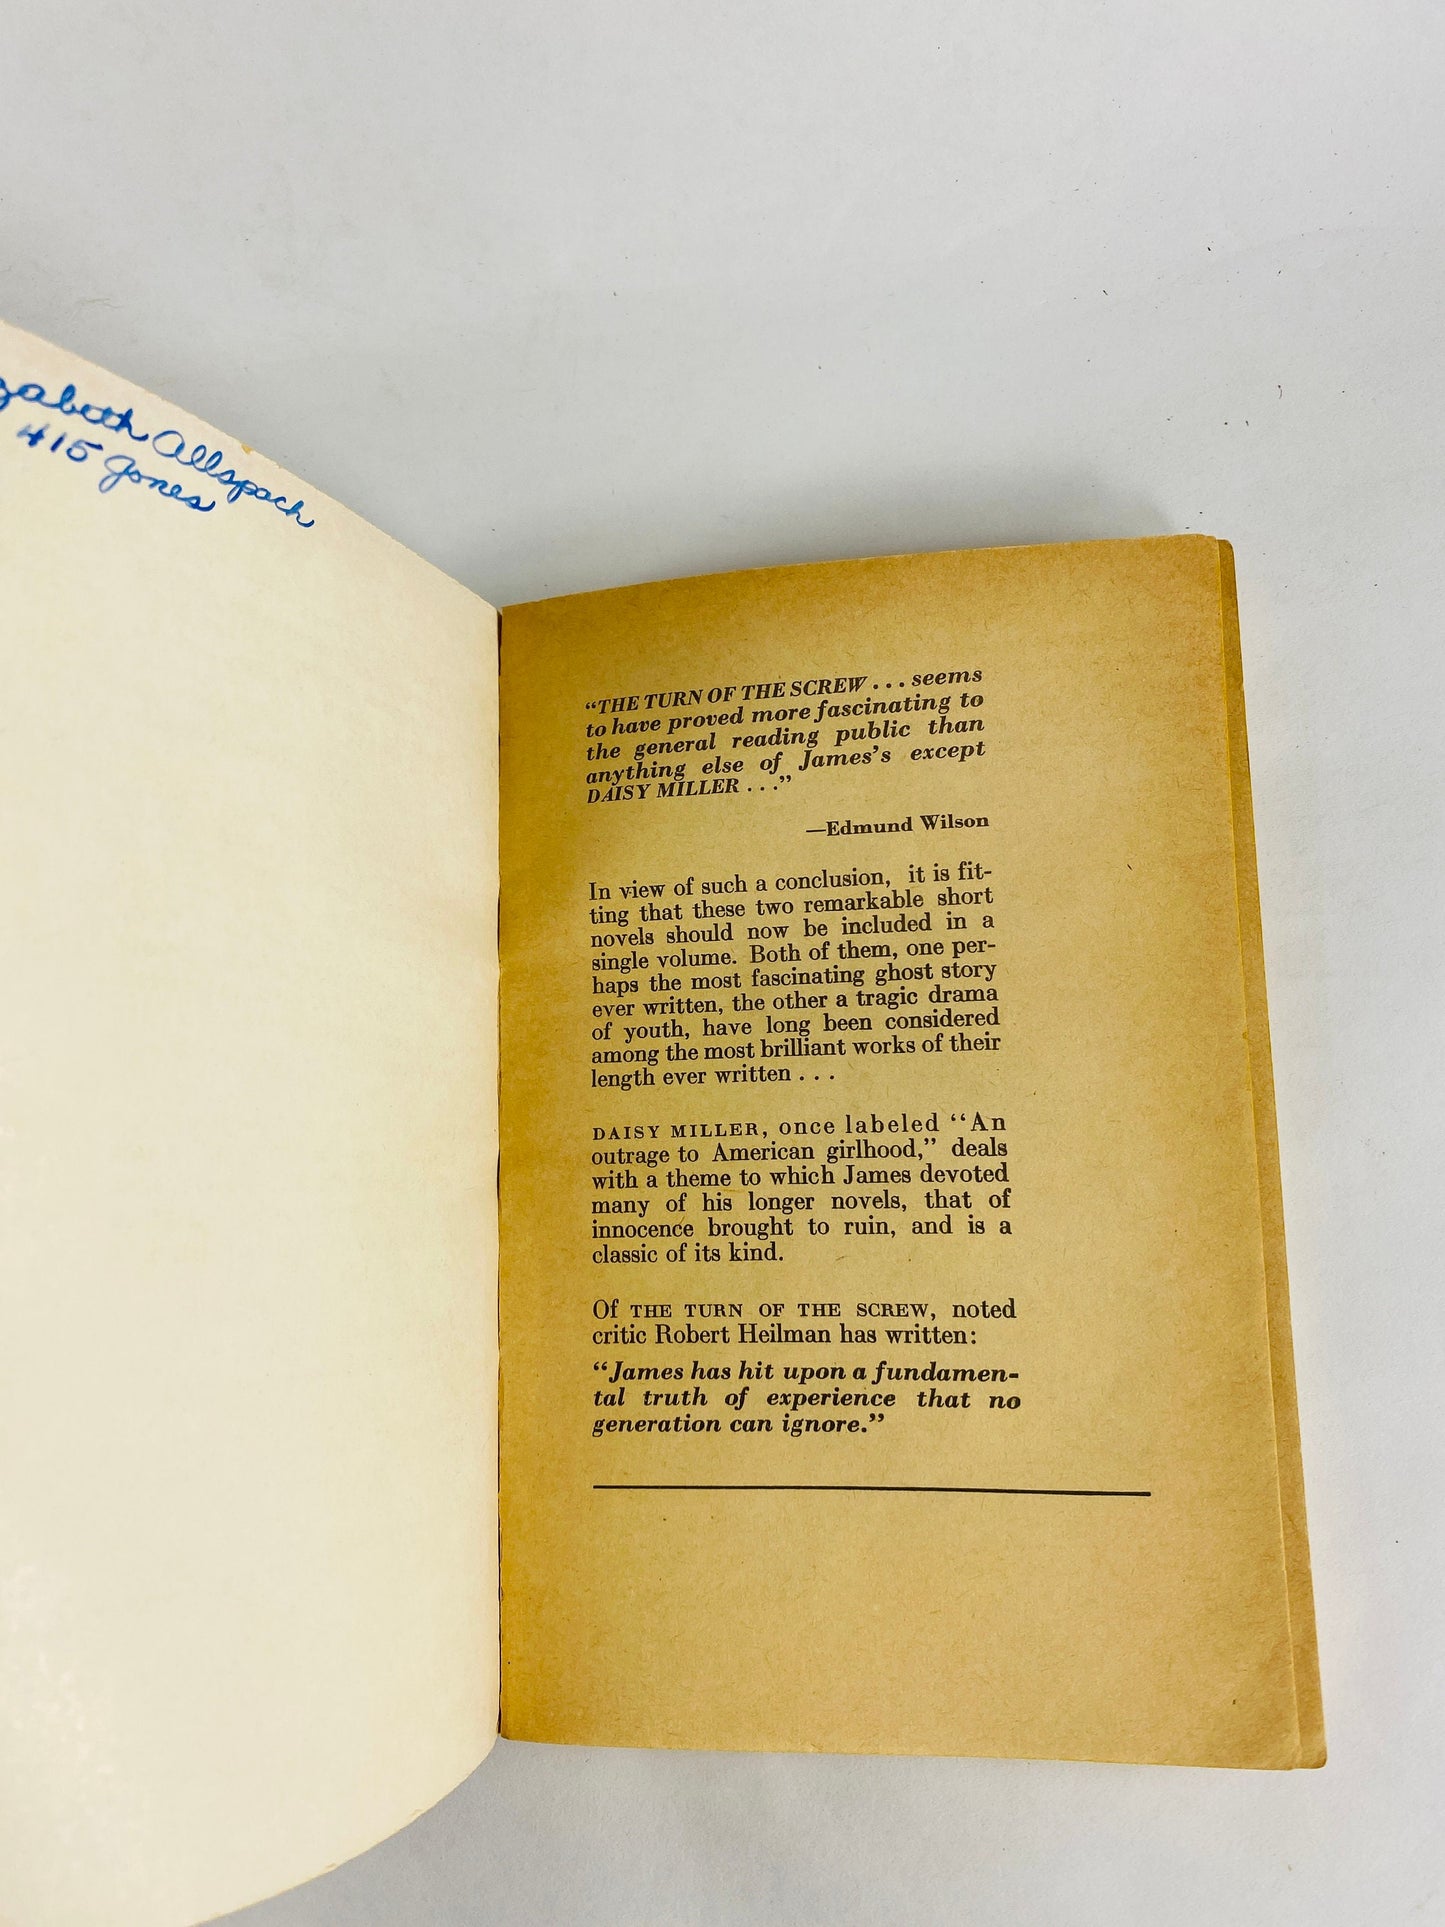 zabeth Allspach
415 Jones
“THE TURN OF THE SCREW . . . seems
to have proved more fascinating to
the general reading public than
anything else of James’s except
DAISY MILLER . . .”
—Edmund Wilson
In view of such a conclusion, it is fit-
ting that these two remarkable short
novels should now be included in a
single volume. Both of them, one per-
haps the most fascinating ghost story
ever written, the other a tragic drama
of youth, have long been considered
among the most brilliant works of their
length ever written . . .
DAISY MILLER, once labeled “An
outrage to American girlhood,” deals
with a theme to which James devoted
many of his longer novels, that of
innocence brought to ruin, and is a
classic of its kind.
Of THE TURN OF THE SCREW, noted
critic Robert Heilman has written:
“James has hit upon a fundamen-
tal truth of experience that no
generation can ignore.”